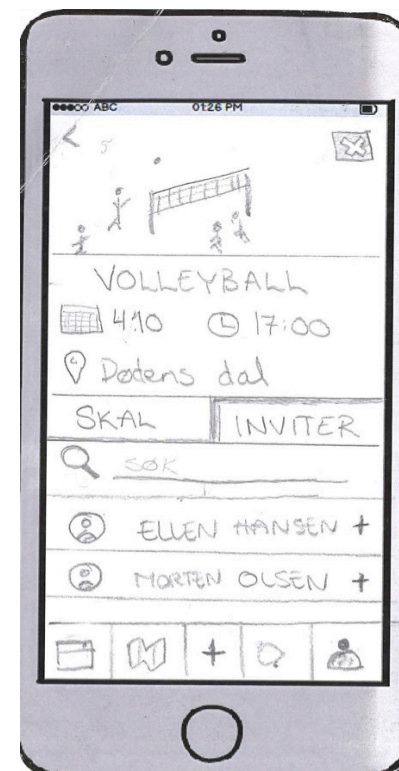 ABC 01:26 PM
VOLLEYBALL
4.10 17:00
Dødens dal
SKAL INVITER
SØK
ELLEN HANSEN +
MORTEN OLSEN +
+